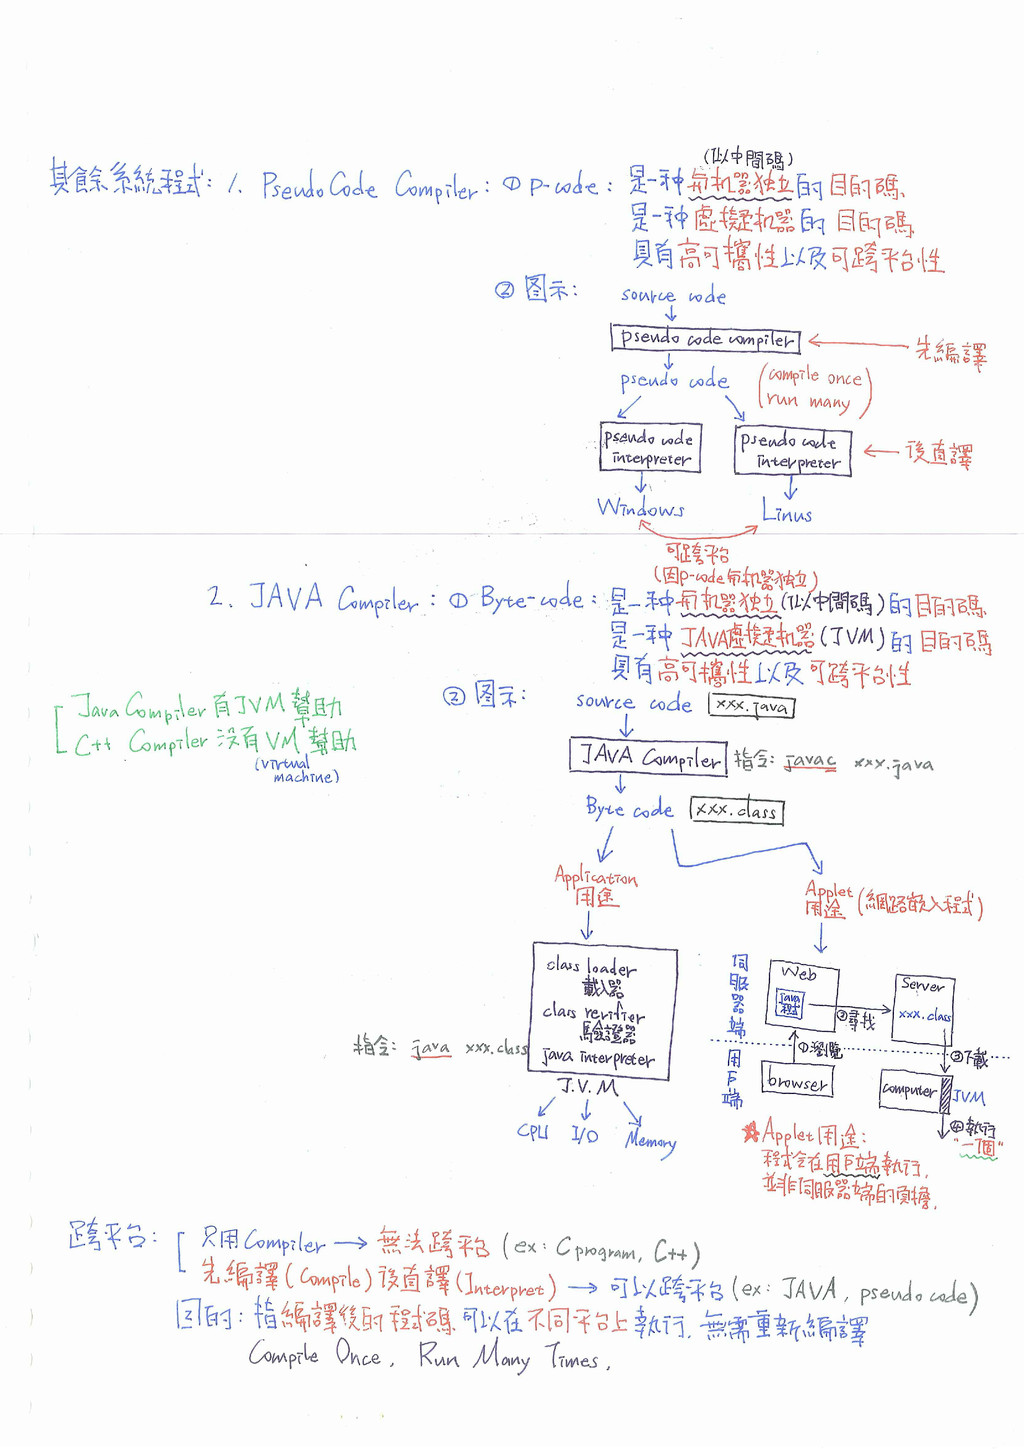 (似中間碼)
其餘系統程式: 1. PseudoCode Compiler: ① P-code: 是一种与机器独立的目的碼
是一种虛擬机器的目的碼
具有高可攜性以及可跨平台性
② 图示: source code
pseudo code compiler ← 先編譯
pseudo code (compile once
run many)
pseudo code
interpreter
pseudo code
interpreter
← 後直譯
Windows Linus
可跨平台
(因p-code与机器独立)
2. JAVA Compiler: ① Byte-code: 是一种与机器独立(似中間碼)的目的碼
是一种JAVA虛擬机器(JVM)的目的碼
具有高可攜性以及可跨平台性
Java Compiler 有JVM幫助
C++ Compiler 沒有VM幫助
(virtual
machine)
② 图示: source code xxx.java
JAVA Compiler 指令: javac xxx.java
Byte code xxx.class
Application
用途
Applet
用途 (網路嵌入程式)
class loader
載入器
class verifier
驗證器
java interpreter
指令: java xxx.class
J.V.M
CPU I/O Memory
伺服器端
Web
java
程式
②尋找
Server
xxx.class
用戶端
①瀏覽
③下載
browser
computer
JVM
④執行
"一個"
★Applet用途:
程式会在用戶端執行,
並非伺服器端的負擔.
跨平台: 只用Compiler → 無法跨平台 (ex: C program, C++)
先編譯(Compile)後直譯(Interpret) → 可以跨平台(ex: JAVA, pseudo code)
目的: 指編譯後的程式碼可以在不同平台上執行, 無需重新編譯
Compile Once, Run Many Times.